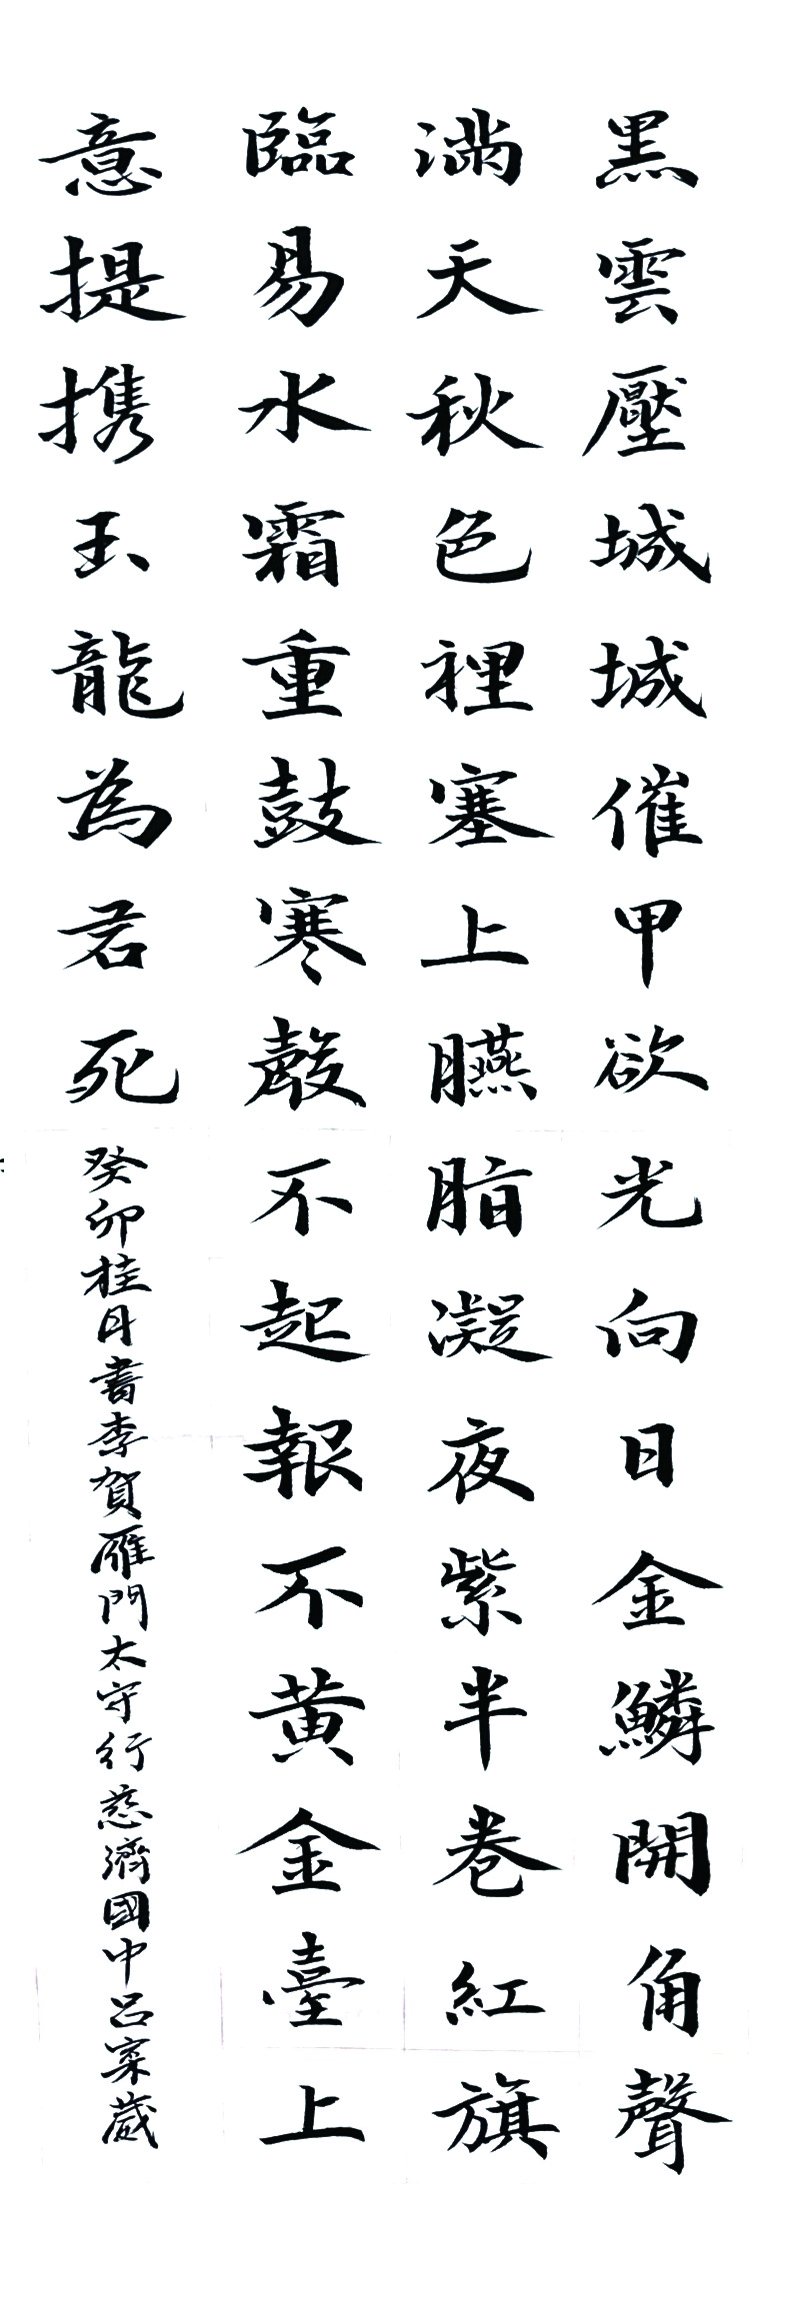 黑雲壓城城催甲欲光向日金鱗開角聲
滿天秋色裡塞上臙脂凝夜紫半卷紅旗
臨易水霜重鼓寒殸不起報不黃金臺上
意提携玉龍為君死 癸卯桂月書李賀雁門太守行慈濟國中呂寀葳